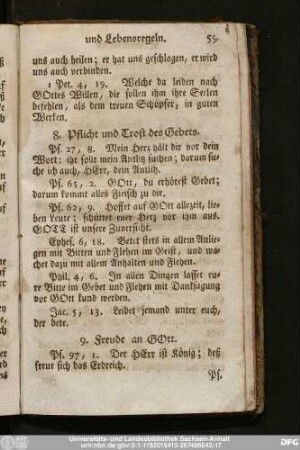 und Lebensregeln. 55
uns auch heilen; er hat uns geschlagen, er wird
uns auch verbinden.
1 Pet. 4, 19. Welche da leiden nach
GOttes Willen, die sollen ihm ihre Seelen
befehlen, als dem treuen Schöpfer, in guten
Werken.
8. Pflicht und Trost des Gebets.
Ps. 27, 8. Mein Herz hält dir vor dein
Wort: ihr solt mein Antlitz suchen; darum su-
che ich auch, HErr, dein Antlitz.
Ps. 65, 2. GOtt, du erhörest Gebet;
darum kommt alles Fleisch zu dir.
Ps. 62, 9. Hoffet auf GOtt allezeit, lie-
ben Leute; schüttet euer Herz vor ihm aus.
GOTT ist unsere Zuversicht.
Ephes. 6, 18. Betet stets in allem Anlie-
gen mit Bitten und Flehen im Geist, und wa-
chet dazu mit allem Anhalten und Flehen.
Phil. 4, 6. In allen Dingen lasset eu-
re Bitte im Gebet und Flehen mit Danksagung
vor GOtt kund werden.
Jac. 5, 13. Leidet jemand unter euch,
der bete.
9. Freude an GOtt.
Ps. 97, 1. Der HErr ist König; deß
freue sich das Erdreich.
Ps.
Universitäts- und Landesbibliothek Sachsen-Anhalt
urn:nbn:de:gbv:3:1-1192015415-267466642-17
DFG